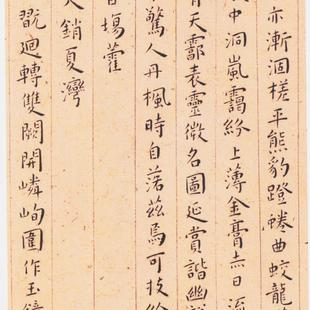 亦漸涸槎平熊豹蹬蜷曲蛟龍
中洞嵐靄紛上薄金膏赤日流
天酃表靈微名圖延賞諧幽
驚人丹楓時自落茲焉可投
場藿
銷夏灣
翫迴轉雙闕開嶙峋圍作玉鏡